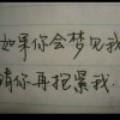 如果你会梦见我
请你再抱紧我.